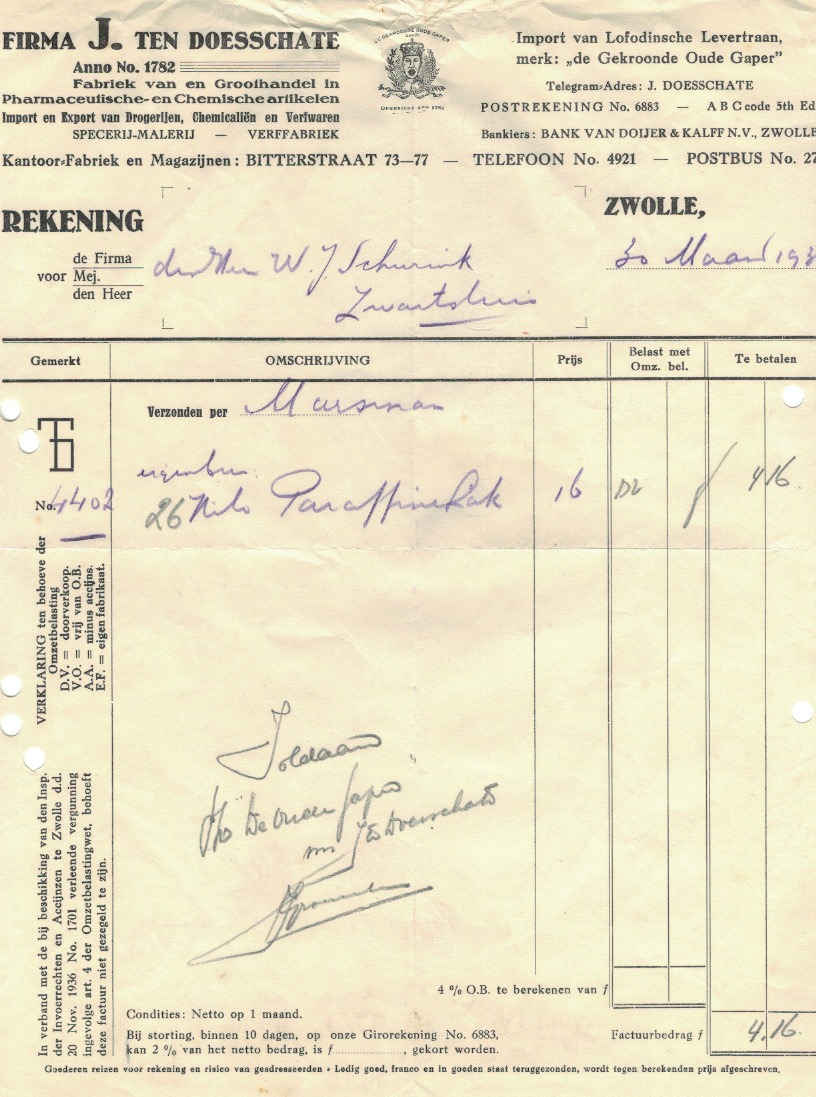 FIRMA J. TEN DOESSCHATE
Anno No. 1782
Fabriek van en Groothandel in
Pharmaceutische- en Chemische artikelen
Import en Export van Drogerijen, Chemicaliën en Verfwaren
SPECERIJ-MALERIJ — VERFFABRIEK
DE GEKROONDE OUDE GAPER
Import van Lofodinsche Levertraan,
merk: „de Gekroonde Oude Gaper”
Telegram-Adres: J. DOESSCHATE
POSTREKENING No. 6883 — A B C code 5th Ed
Bankiers: BANK VAN DOIJER & KALFF N.V., ZWOLLE
Kantoor-Fabriek en Magazijnen: BITTERSTRAAT 73—77 — TELEFOON No. 4921 — POSTBUS No. 27
REKENING
ZWOLLE,
30 Maart 193
voor
de Firma
Mej.
den Heer
den Heer W. J. Schurink
Zwartsluis
Gemerkt
OMSCHRIJVING
Prijs
Belast met
Omz. bel.
Te betalen
Verzonden per Marsman
No. 4402
26 Kilo Paraffine Lak 16 DV f 4 16
VERKLARING ten behoeve der
Omzetbelasting
D.V. = doorverkoop.
V.O. = vrij van O.B.
A.A. = minus accijns.
E.F. = eigen fabrikaat.
In verband met de bij beschikking van den Insp.
der Invoerrechten en Accijnzen te Zwolle d.d.
20 Nov. 1936 No. 1701 verleende vergunning
ingevolge art. 4 der Omzetbelastingwet, behoeft
deze factuur niet gezegeld te zijn.
Voldaan
"De Oude Gaper"
J ten Doesschate
4 % O.B. te berekenen van f
Condities: Netto op 1 maand.
Bij storting, binnen 10 dagen, op onze Girorekening No. 6883,
kan 2 % van het netto bedrag, is f , gekort worden.
Factuurbedrag f 4.16.
Goederen reizen voor rekening en risico van geadresseerden - Ledig goed, franco en in goeden staat teruggezonden, wordt tegen berekenden prijs afgeschreven.